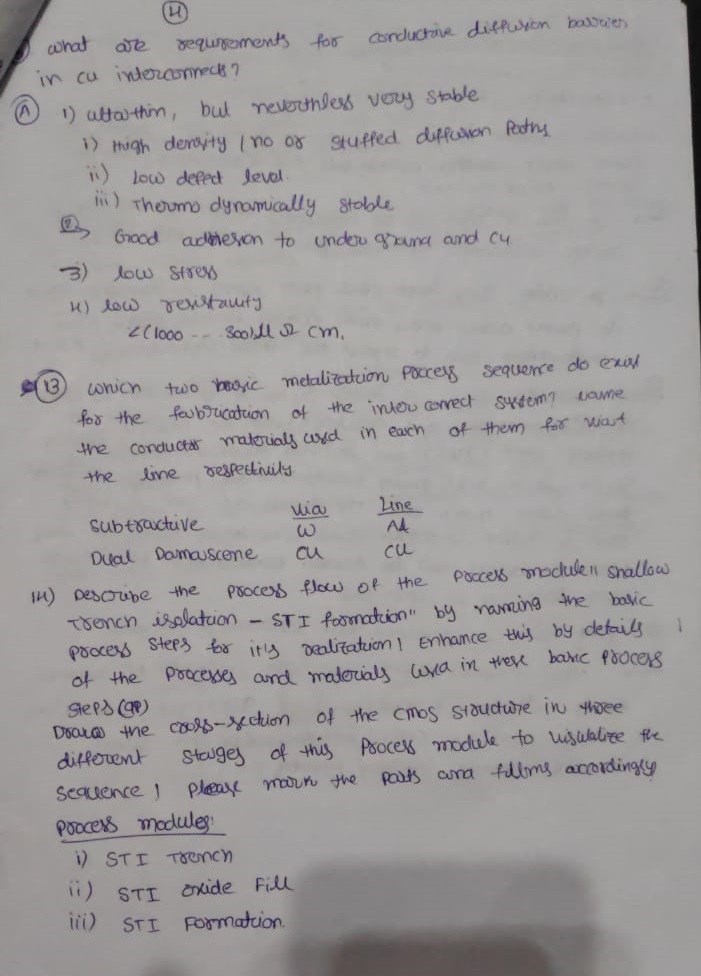 4
what are requirements for conductive diffusion barrier
in cu interconnects?
A 1) ultrathin, but nevertheless very stable
i) High density / no or stuffed diffusion Paths
ii) Low defect level.
iii) Thermo dynamically stable
2) Good adhesion to under ground and cu
3) low stress
4) low resistivity
<(1000 -- 300) μ Ω cm.
13 which two basic metalization Process sequence do exist
for the fabrication of the inter connect system? name
the conductor materials used in each of them for via &
the line respectivily.
Via Line
Subtractive W Al
Dual Damascene Cu Cu
14) Describe the process flow of the process module "shallow
Trench isolation - STI formation" by naming the basic
process steps for it's realization! Enhance this by details
of the processes and materials used in these basic process
steps (9P)
Draw the cross-section of the cmos structure in three
different stages of this Process module to visualize the
sequence! please mark the parts and fillms accordingly
process modules:
i) STI Trench
ii) STI oxide Fill
iii) STI Formation.